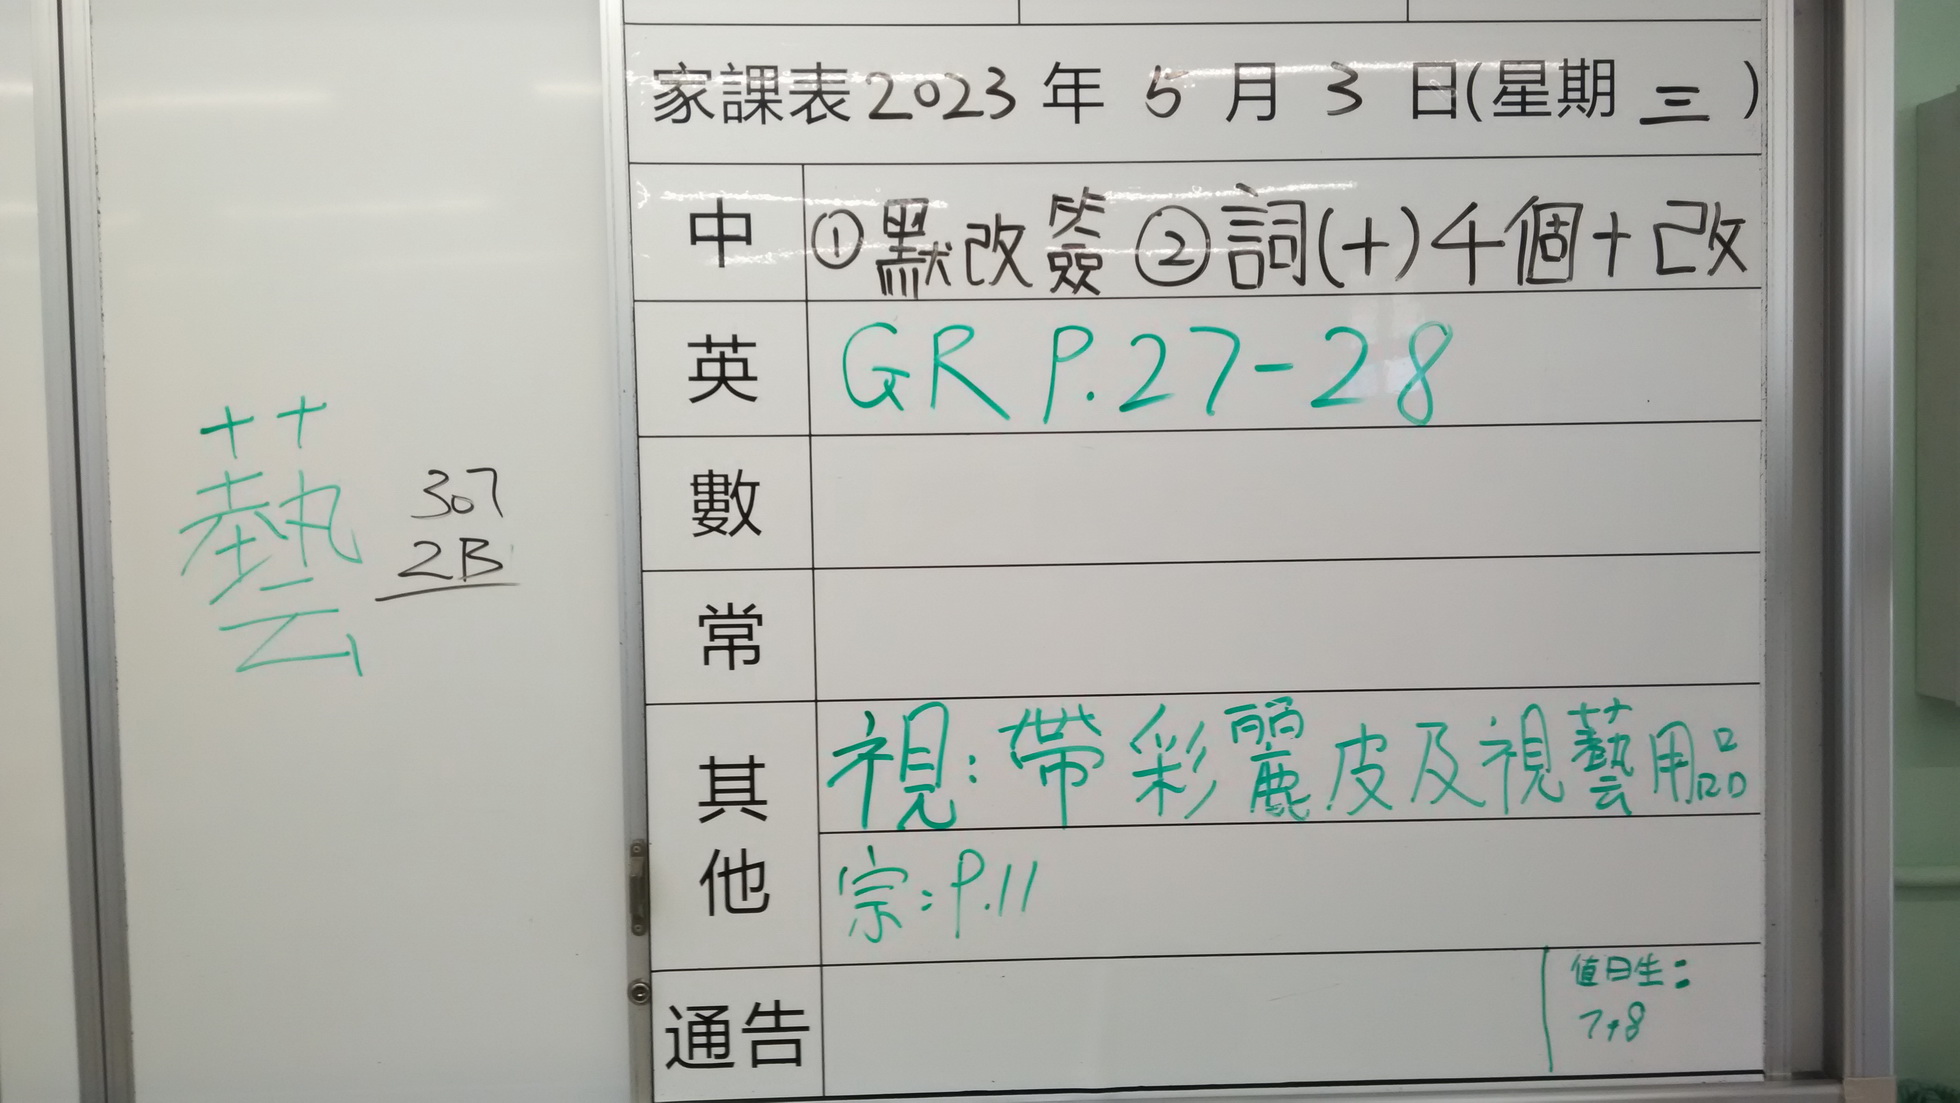 家課表2023年5月3日(星期三)
中 ①默改簽②詞(十)4個+改
英 GR P.27-28
數
常
其他 視:帶彩麗皮及視藝用品
宗:P.11
通告
值日生:
7+8
藝
307
2B